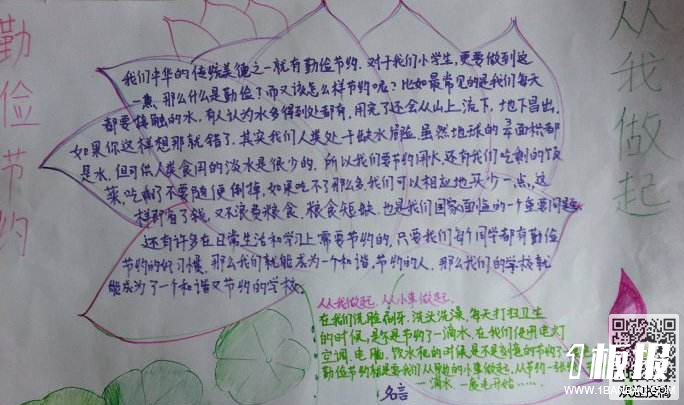 勤俭节约
从我做起
我们中华的传统美德之一就有勤俭节约。对于我们小学生,更要做到这
一点。那么什么是勤俭?而又该怎么样节约呢?比如最常见的是我们每天
都要接触的水,有人认为水多得到处都有,用完了还会从山上流下,地下冒出,
如果你这样想那就错了,其实我们人类处于缺水危险,虽然地球的面积都
是水,但可供人类食用的淡水是很少的,所以我们要节约用水,还有我们吃剩的饭
菜,吃剩了不要随便倒掉,如果吃不了那么多我们可以相应地买少一点,这
样即省了钱,又不浪费粮食,粮食短缺,也是我们国家面临的一个重要问题。
还有许多在日常生活和学习上需要节约的,只要我们每个同学都有勤俭
节约的好习惯,那么我们就能成为一个和谐,节约的人,那么我们的学校就
能成为了一个和谐又节约的学校。
从我做起,从小事做起,
在我们洗脸刷牙,洗头洗澡,每天打扫卫生
的时候,是你是节约了一滴水,在我们使用电灯
空调,电脑,饮水机的时候是不是多想的节约了
勤俭节约就是要我们从身边的小事做起,从节约一张
一滴水,一度电开始……
名言
1板报
WWW.1BANBAO.COM
欢迎投稿